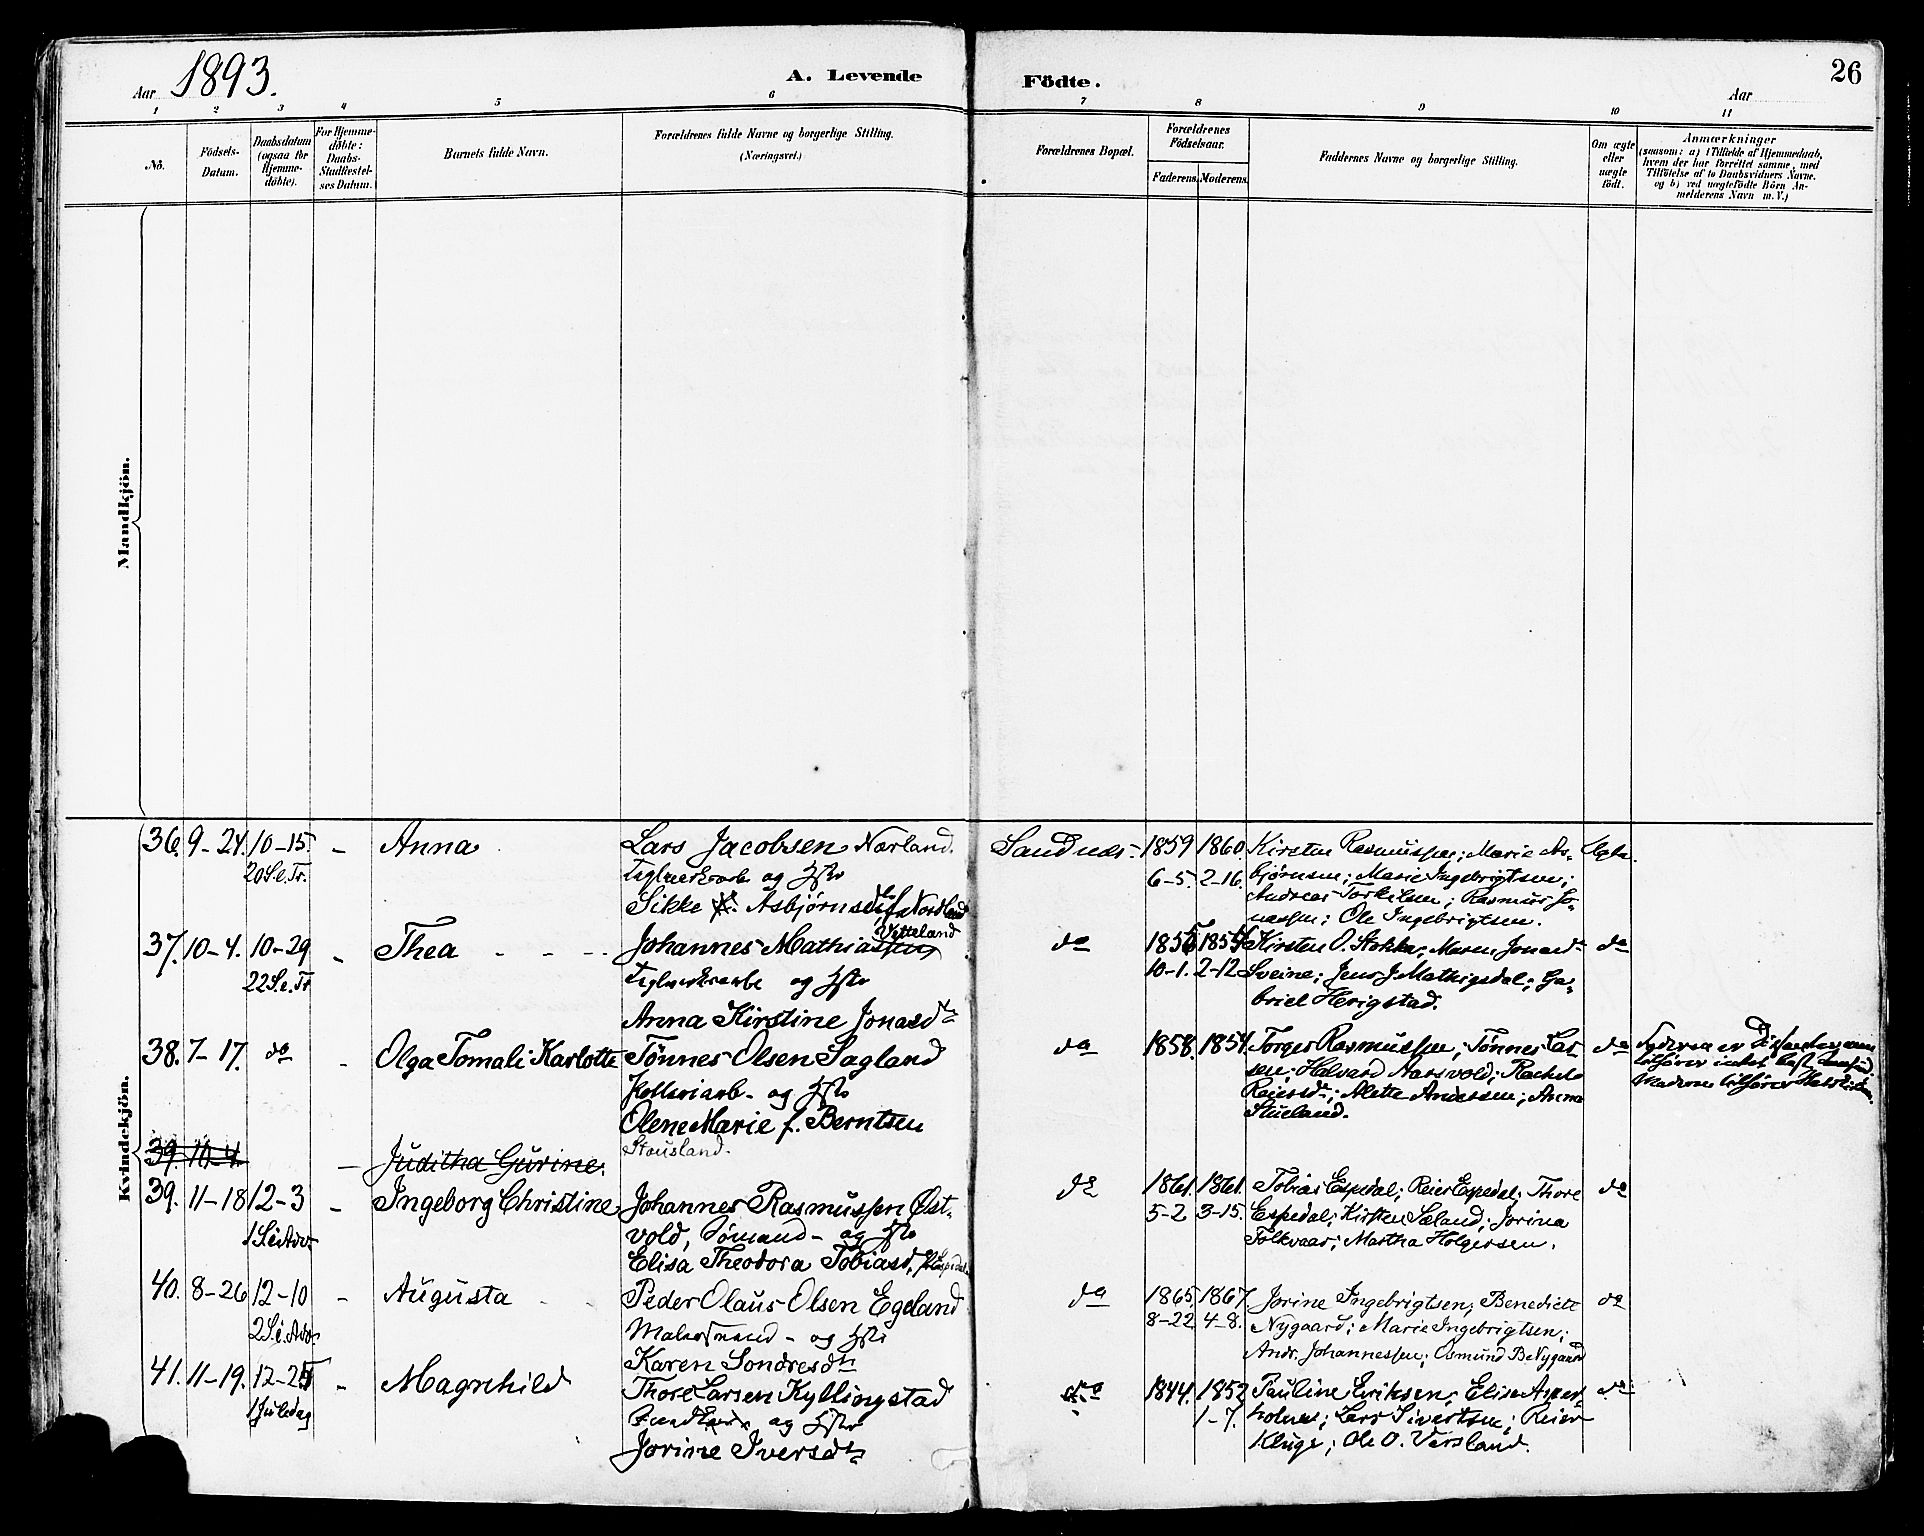 Aar 1893.
A. Levende
Födte.
Aar
26
1 2 3 4 5 6 7 8 9 10 11
No.
Födsels-
Datum.
Daabsdatum
(ogsaa for
Hjemme-
döbte).
For Hjemme-
döbte:
Daabs-
Stadfæstel-
ses Datum.
Barnets fulde Navn.
Forældrenes fulde Navne og borgerlige Stilling.
(Næringsvei.)
Forældrenes Bopæl.
Forældrenes
Födselsaar.
Faderens.
Moderens.
Faddernes Navne og borgerlige Stilling.
Om ægte
eller
uægte
födt.
Anmærkninger
(saasom: a) i Tilfælde af Hjemmedaab,
hvem der har forrettet samme, med
Tilföielse af to Daabsvidners Navne.
og b) ved uægtefödte Börn An-
melderens Navn m. V.)
Mandkjön.
Kvindekjön.
36. 9-24. 10-15. - Anna Lars Jacobsen Nærland. Sandnes. 1859 1860. Kirsten Rasmussen; Marie As- Ægte.
20 S.e.Tr. Teglverksarb og Hstr 6-5. 2-16. bjørnsen; Marie Ingebrigtsen;
Sikke Asbjørnsd Andreas Torkilsen; Rasmus Jo-
nassen; Ole Ingebrigtsen.
37. 10-4. 10-29 - Thea Johannes Mathiassen Vatteland do Kirsten O. Stokka, Maren Jonasd- do
22 S.e.Tr Teglverksarb og Hstr 10-1. 2-12 Sveine; Jens J. Mathigsdal; Ga-
Anna Kirstine Jonasdtr briel Hørigstad.
38. 7-17. do - Olga Tomali Karlotte Tønnes Olsen Sagland do 1858. 1854. Torger Rasmussen; Tønnes Lar- do
Potteriarb- og Hstr sen; Halvard Aarsvold; Rachel
Olene Marie f. Berntsen Reiersd; Alette Andersen; Anna
Stousland. Stueland.
39. 10-4 - Juditha Gurine.
39. 11-18 12-3 - Ingeborg Christine Johannes Rasmussen Øst- do 1861. 1861. Tobias Espedal; Reier Espedal; Thore do
1 S.i Adv. vold, Sømand- og Hstr 5-2 3-15. Espedal; Kirsten Sæland; Jorina
Elisa Theodora Tobiasd, Folkvaar; Martha Holgersen.
40. 8-26 12-10 - Augusta Peder Olaus Olsen Egeland do 1865. 1867. Jorine Ingebrigtsen; Benedicte do
2 S.i.Adv. Malersvend- og Hstr 8-22 4-8. Nygaard; Marie Ingebrigtsen;
Karen Sondresdtr Andr. Johannessen; Osmund B Nygaard
41. 11-19. 12-25 - Magnhild Thore Larsen Kyllingstad do 1844. 1852 Pauline Eriksen; Elise Asper- do
1 Juledag og Hstr 1-7. holmes; Lars Sivertsen; Reier
Jorine Iversdtr Kluge; Ole O. Versland.